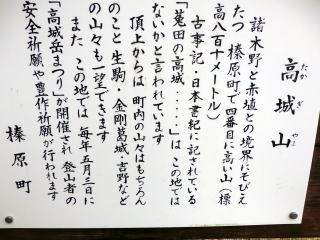 高城山
たかぎやま
諸木野と赤埴との境界にそびえ
たつ 榛原町で四番目に高い山(標
高八百十メートル)
古事記・日本書紀に記されている
「菟田の高城・・・・・」は この地では
ないかと言われています
頂上からは 町内の山々はもちろん
のこと 生駒・金剛葛城・吉野など
の山々も一望できます
また、この地では 毎年 五月三日に
「高城岳まつり」が開催され 登山者の
安全祈願や豊作祈願が行われます
榛原町